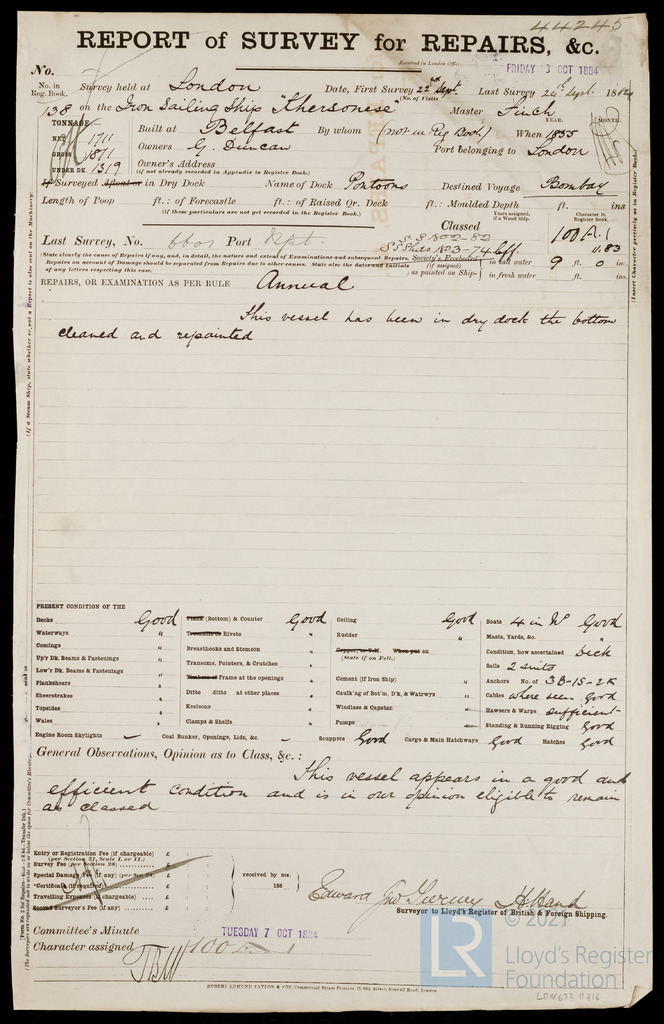 44245
REPORT of SURVEY for REPAIRS, &c.
Received in London Office,
FRIDAY 3 OCT 1884
No.
No. in Reg. Book. Survey held at London Date, First Survey 22nd Sept. Last Survey 24th Sept. 1884
(No. of Visits
138 on the Iron Sailing Ship "Khersonese" Master Finch
TONNAGE YEAR. MONTH.
NET 1711 Built at Belfast By whom (not in Reg Book) When 1855
GROSS 1871 Owners G. Duncan Port belonging to London
UNDER DK. 1319 Owner's Address
(if not already recorded in Appendix to Register Book.)
If Surveyed Afloat or in Dry Dock Name of Dock Pontoons Destined Voyage Bombay
Length of Poop ft.: of Forecastle ft.: of Raised Qr. Deck ft.: Moulded Depth ft. ins
(if these particulars are not yet recorded in the Register Book.)
Years assigned, if a Wood Ship. Character in Register Book.
Classed 100 A.1
Last Survey, No. 6601 Port Rpt. 11.83
(State clearly the cause of Repairs if any, and, in detail, the nature and extent of Examinations and subsequent Repairs.
Repairs on account of Damage should be separated from Repairs due to other causes. State also the dates and initials
of any letters respecting this case.
Society's Freeboard (if assigned) as painted on Ship- in salt water 9 ft. 0 in.
in fresh water ft. in.
REPAIRS, OR EXAMINATION AS PER RULE Annual
This vessel has been in dry dock the bottom
cleaned and repainted
PRESENT CONDITION OF THE
Decks Good Plank (Bottom) & Counter Good Ceiling Good Boats 4 in No Good
Waterways " Treenails or Rivets " Rudder " Masts, Yards, &c. "
Comings " Breasthooks and Stemson " Copper, or Y.M. When put on Condition, how ascertained Deck
(State if on Felt.)
Up'r Dk. Beams & Fastenings " Transoms, Pointers, & Crutches " Sails 2 suits
Low'r Dk. Beams & Fastenings " Timbers or Frame at the openings " Cement (if Iron Ship) " Anchors No. of 3B-1S-2K
Planksheers " Ditto ditto at other places " Caulk'ng of Bot'm, D'k, & Watrwys " Cables where seen Good
Sheerstrakes " Keelsons " Windlass & Capstan " Hawsers & Warps sufficient
Topsides " Clamps & Shelfs " Pumps " Standing & Running Rigging Good
Wales "
Engine Room Skylights Coal Bunker, Openings, Lids, &c. Scuppers Good Cargo & Main Hatchways Good Hatches Good
General Observations, Opinion as to Class, &c.:
This vessel appears in a good and
efficient condition and is in our opinion eligible to remain
as classed
Entry or Registration Fee (if chargeable) £
(per Section 27, Scale I. or II.)
Survey Fee (per Section 28) £
Special Damage Fee (if any) (per Sec. £
*Certificate (if required) £
Travelling Expenses (if chargeable) £
Second Surveyor's Fee (if any) £
received by me,
188
Surveyor to Lloyd's Register of British & Foreign Shipping.
Committee's Minute TUESDAY 7 OCT 1884
Character assigned 100 A 1
© 2021
LR
Lloyd's Register
Foundation
LON673 0316